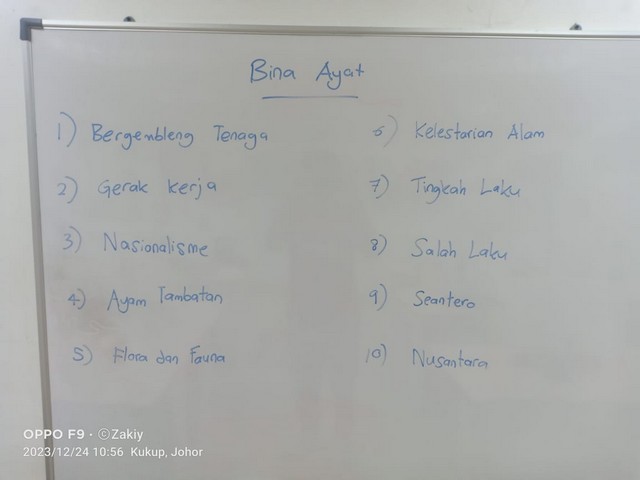 Bina Ayat
1) Bergembleng Tenaga
2) Gerak kerja
3) Nasionalisme
4) Ayam Tambatan
5) Flora dan Fauna
6) Kelestarian Alam
7) Tingkah Laku
8) Salah Laku
9) Seantero
10) Nusantara
OPPO F9 · ©Zakiy
2023/12/24 10:56 Kukup, Johor